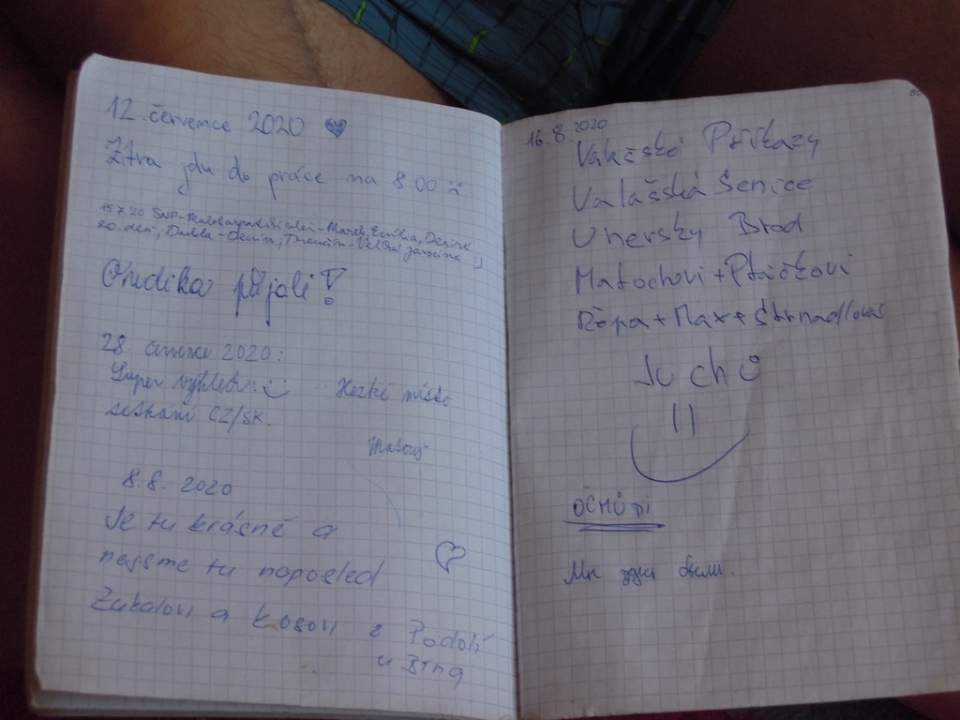 12. července 2020
Zítra jdu do práce na 8:00
15.7.20 SNP - Marek, Emília, Denisa
20. deň, Dukla - Devín, Trenčín - Veľká Javorina :)
Ondíka přijali!
28. července 2020:
Super výhled :) Hezké místo
setkání CZ/SK.
Matouš
8.8. 2020
Je tu krásně a
nejsme tu naposled
Zukalovi a Kosovi z Podolí
u Brna
16.8.2020
Valašské Příkazy
Valašská Senice
Uherský Brod
Matochovi + Ptáčkovi
Řépa + Max + Štrnadlovas
Juchů
OČMŮDI